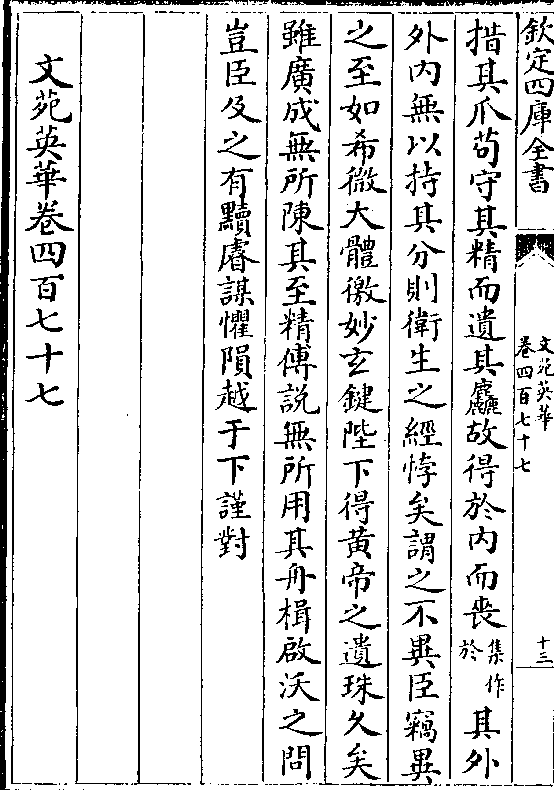 欽定四庫全書
文苑英華
卷四百七十七
十三
措其爪苟守其精而遺其麤故得於内而喪集作於其外
外内無以持其分則衛生之經悖矣謂之不異臣竊異
之至如希微大體徼妙玄鍵陛下得黄帝之遺珠久矣
雖廣成無所陳其至精傅説無所用其舟楫啟沃之問
豈臣及之有黷睿謀懼隕越于下謹對
文苑英華卷四百七十七